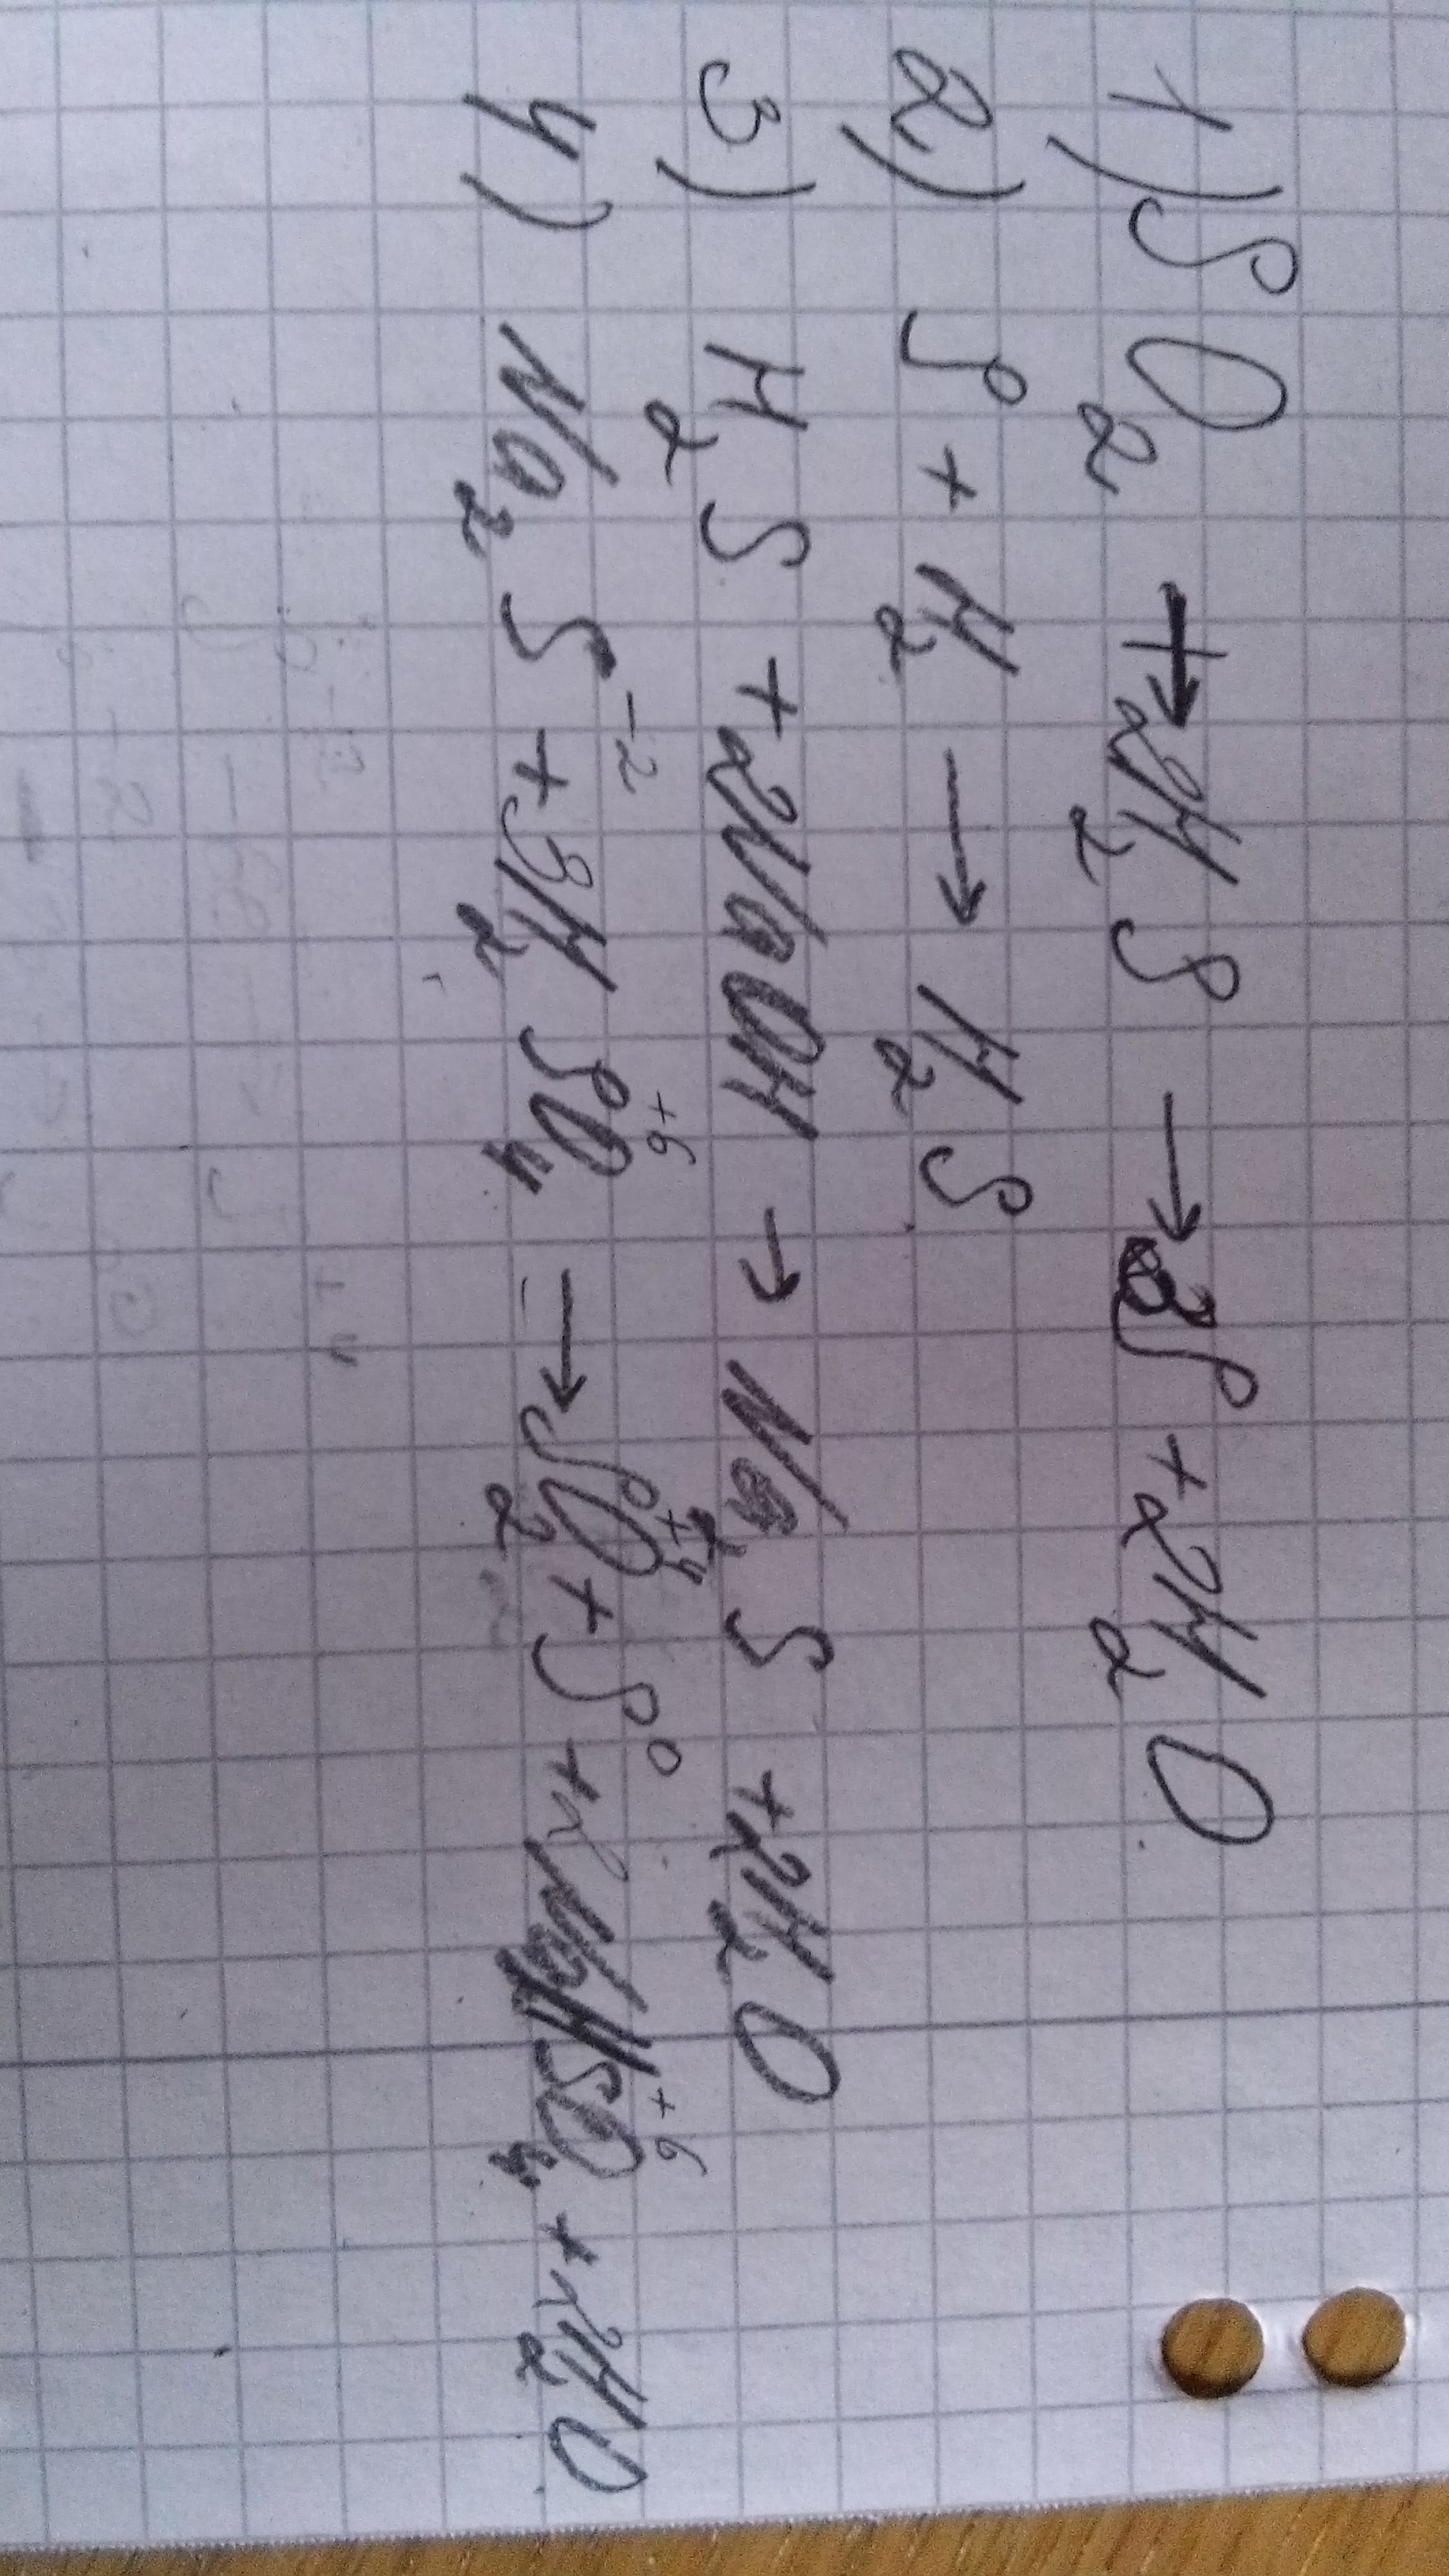 1) SO₂ + 2H₂S → 3S + 2H₂O
2) S + H₂ → H₂S
3) H₂S + 2NaOH → Na₂S + 2H₂O
4) Na₂S⁻² + 3H₂S⁺⁶O₄ → S⁺⁴O₂ + S⁰ + 2NaHS⁺⁶O₄ + 2H₂O